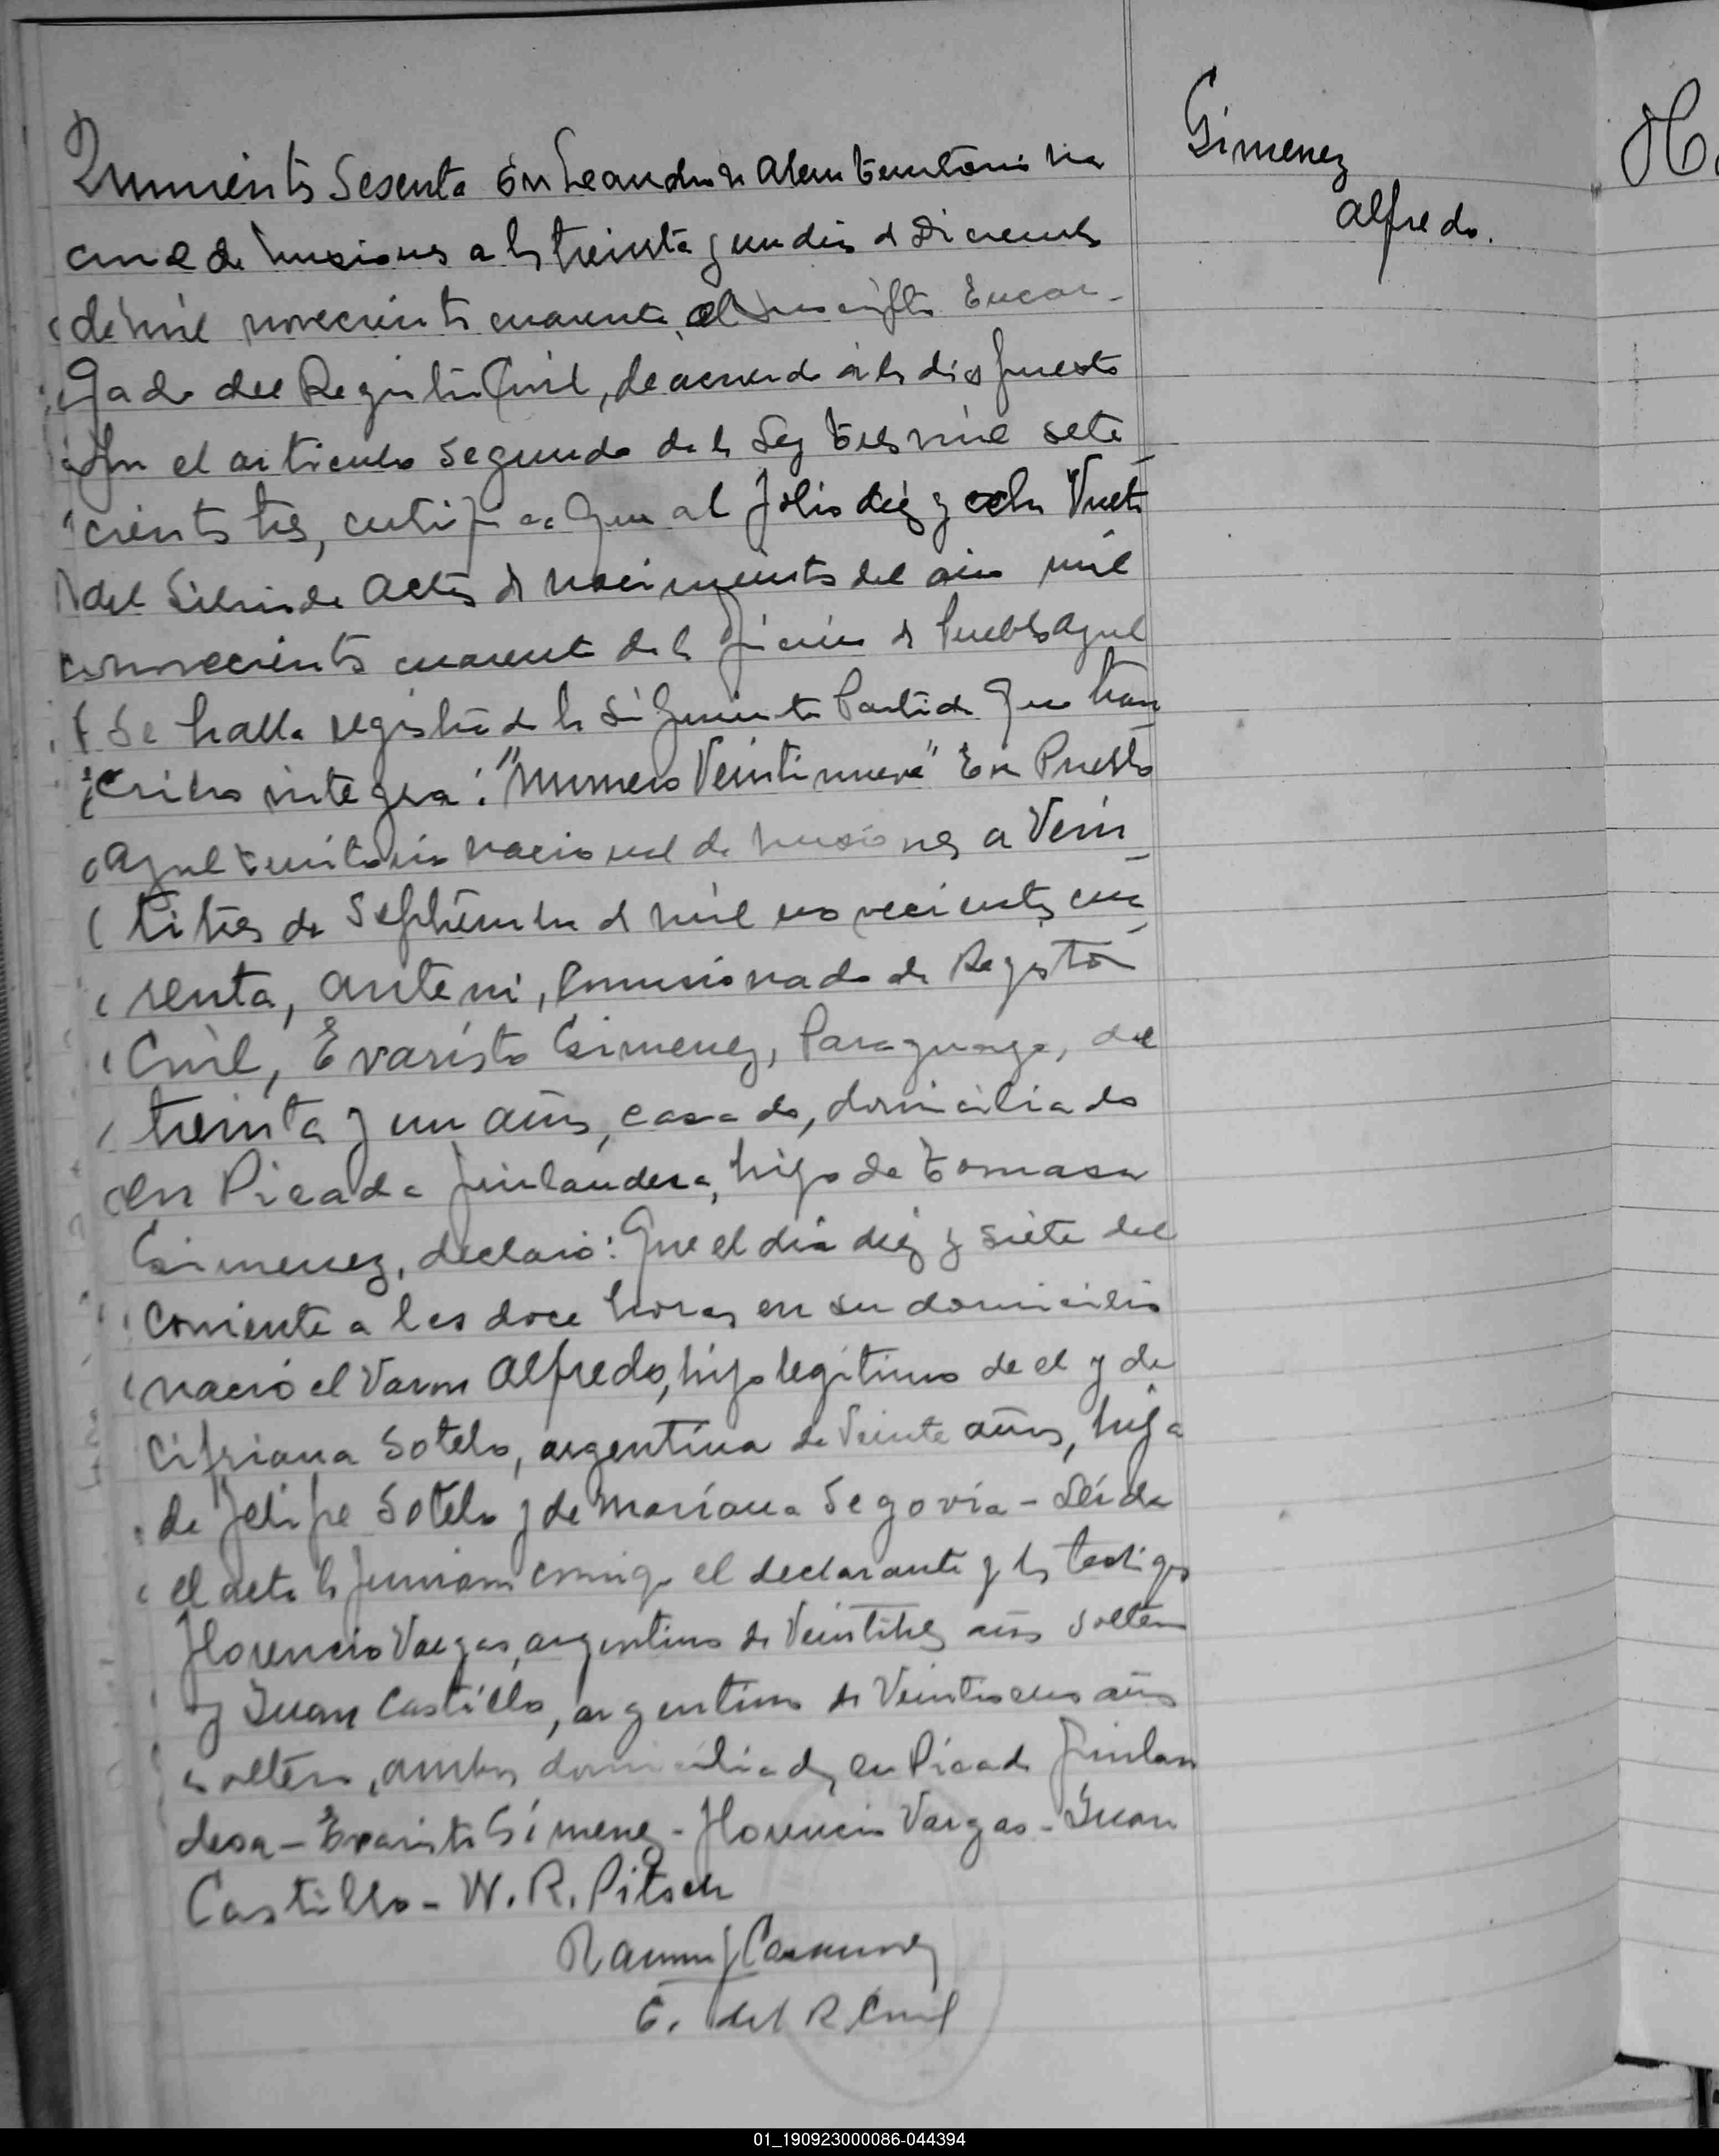 Quinientos Sesenta En Leandro N Alem Territorio Na
cional de Misiones a los treinta y un dias de Diciembre
de mil novecientos cuarenta, el suscripto Encar-
gado del Registro Civil, de acuerdo a lo dispuesto
en el articulo segundo de la Ley tres mil sete
cientos tres, certifica Que al folio diez y ocho Vuelto
del Libro de Actas de nacimientos del año mil
novecientos cuarenta de la Oficina de Pueblo Azul
Se halla registrada la siguiente Partida Que trans
cribo integra: "Numero Veintinueve" En Pueblo
Azul territorio nacional de Misiones a Vein
titres de Septiembre de mil novecientos cua
renta, ante mi, Comisionado de Registro
Civil, Evaristo Gimenez, Paraguayo, de
treinta y un años, casado, domiciliado
en Picada finlandesa, hijo de Tomasa
Gimenez, declaró: Que el dia diez y siete del
corriente a las doce horas en su domicilio
nació el Varon Alfredo, hijo legitimo de el y de
Cipriana Sotelo, argentina de Veinte años, hija
de Felipe Sotelo y de Mariana Segovia - Leida
el acta la firmaron conmigo el declarante y los testigos
Florencio Vargas, argentino de Veintitres años soltero
y Juan Castillo, argentino de años
soltero, ambos domiciliados en Picada Finlan
desa - Evaristo Gimenez - Florencio Vargas - Juan
Castillo - W. R. Pitsch
Ramon
E. del R Civil
Gimenez
Alfredo.
01_190923000086-044394